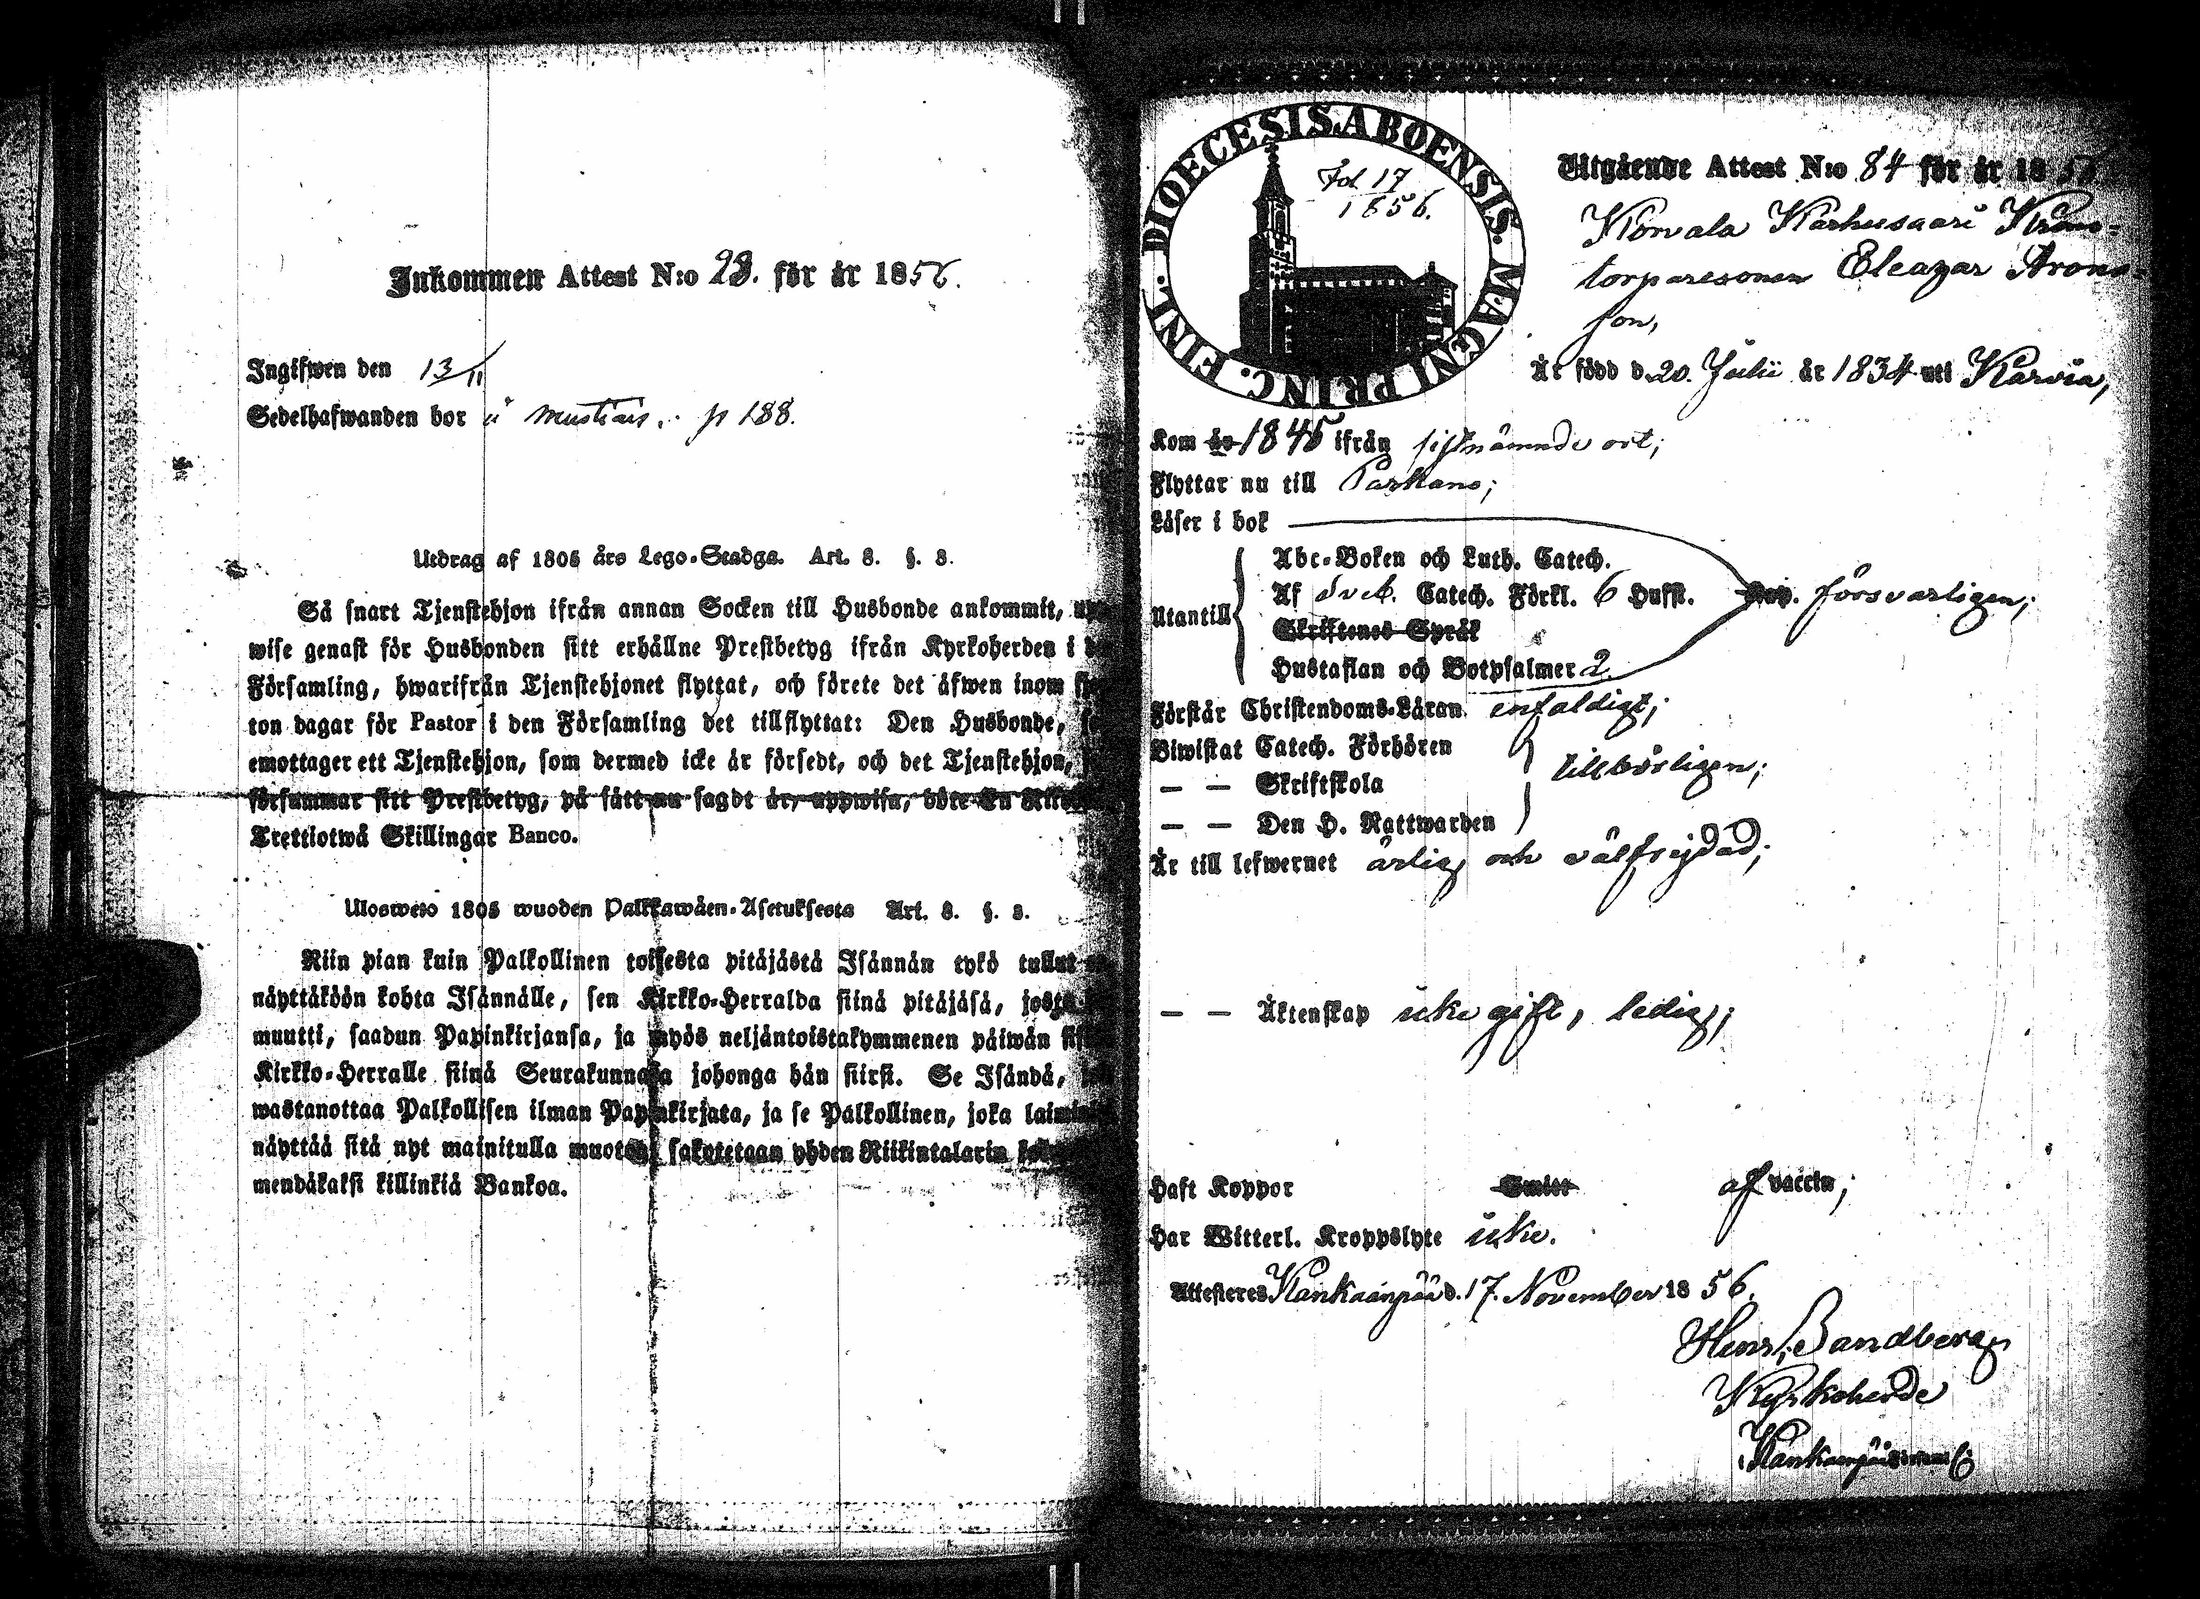 Inkommen Attest N:o 23. för år 1856.
Ingifwen den 13/11
Sedelhafwanden bor i p 188.
Utdrag af 1805 års Lego-Stadga. Art. 8. §. 3.
Så snart Tjenstehjon ifrån annan Socken till Husbonde ankommit,
wise genast för Husbonden sitt erhållne Prestbetyg ifrån Kyrkoherden i
Församling, hwarifrån Tjenstehjonet flyttat, och förete det äfwen inom
ton dagar för Pastor i den Församling det tillflyttat: Den Husbonde,
emottager ett Tjenstehjon, som dermed icke är försedt, och det Tjenstehjon,
försummar sitt Prestbetyg, på sätt nu sagdt är, uppwisa, böte En
Trettiotwå Skillingar Banco.
Ulosweto 1805 wuoden Palkkawäen-Asetuksesta Art. 8. §. 3.
Niin pian kuin Palkollinen toisesta pitäjästä Isännän tykö tullut
näyttäköön kohta Isännälle, sen Kirkko-Herralda siinä pitäjäsä, josta
muutti, saadun Papinkirjansa, ja myös neljäntoistakymmenen päiwän
Kirkko-Herralle siinä Seurakunnasa johonga hän siirsi. Se Isändä,
wastanottaa Palkollisen ilman Papinkirjata, ja se Palkollinen, joka
näyttää sitä nyt mainitulla muotoa, sakotetaan yhden Riikintalarin
mendäkaksi killinkiä Bankoa.
DIOECESIS. ABOENSIS. MAGNI PRINC. FINL.
Fol 17
1856.
Utgående Attest N:o 84 för år 1856
Karhusaari Krono-
torparesonen Eleazar Arons-
son,
Är född d. 20. Julii år 1834 uti Karvia,
Kom år 1845 ifrån sistnämnde ort;
Flyttar nu till Parkano;
Läser i bok
Utantill
Abc-Boken och Luth. Catech.
Af Sveb. Catech. Förkl. 6 Hufst. försvarligen;
Skriftenes Språk
Hustaflan och Botpsalmer 2.
Förstår Christendoms-Läran enfaldigt;
Biwistat Catech. Förhören
— — Skriftskola tillbörligen;
— — Den H. Nattwarden
Är till lefwernet ärlig och välfrejdad;
— — Äktenskap icke gift, ledig;
Haft Koppor Smitt af vaccin;
Har Witterl. Kroppslyte icke.
Attesteres Kankaanpää d. 17. November 1856.
Henr. Sandberg
Kyrkoherde